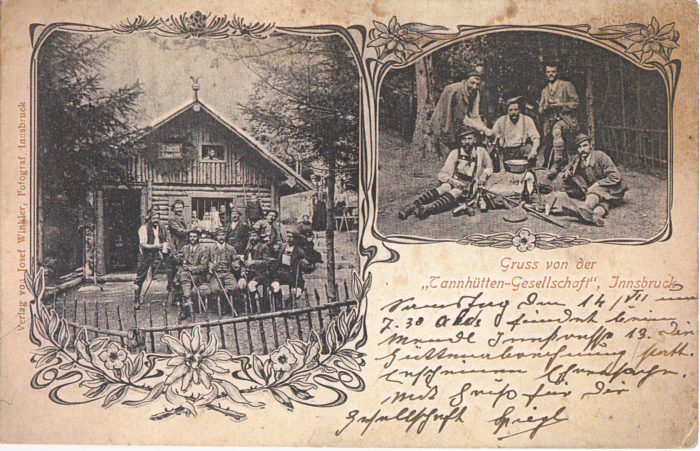 Verlag von Josef Winkler, Fotograf, Innsbruck
Gruss von der
„Tannhütten-Gesellschaft", Innsbruck
Samstag den 14/VII um
7.30 findet beim
Mendl Innstrasse 19. Die
Hüttenabrechnung statt
Erscheinen Ehrensache.
Mit Gruß für die
Gesellschaft Spiegl